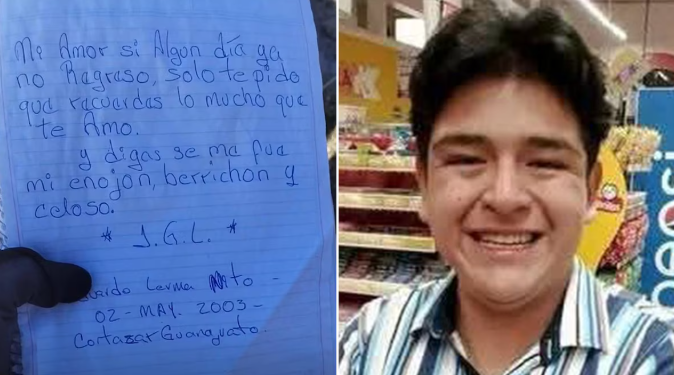 Mi Amor si Algun día ya
no Ragraso, solo te pido
que racuardas lo mucho que
te Amo.
y digas se ma fua
mi enojon, berrichon y
celoso.
* J.G.L. *
uardo Lerma Nito -
02 - MAY. 2003 -
Cortazar Guanajuato.
pepsi